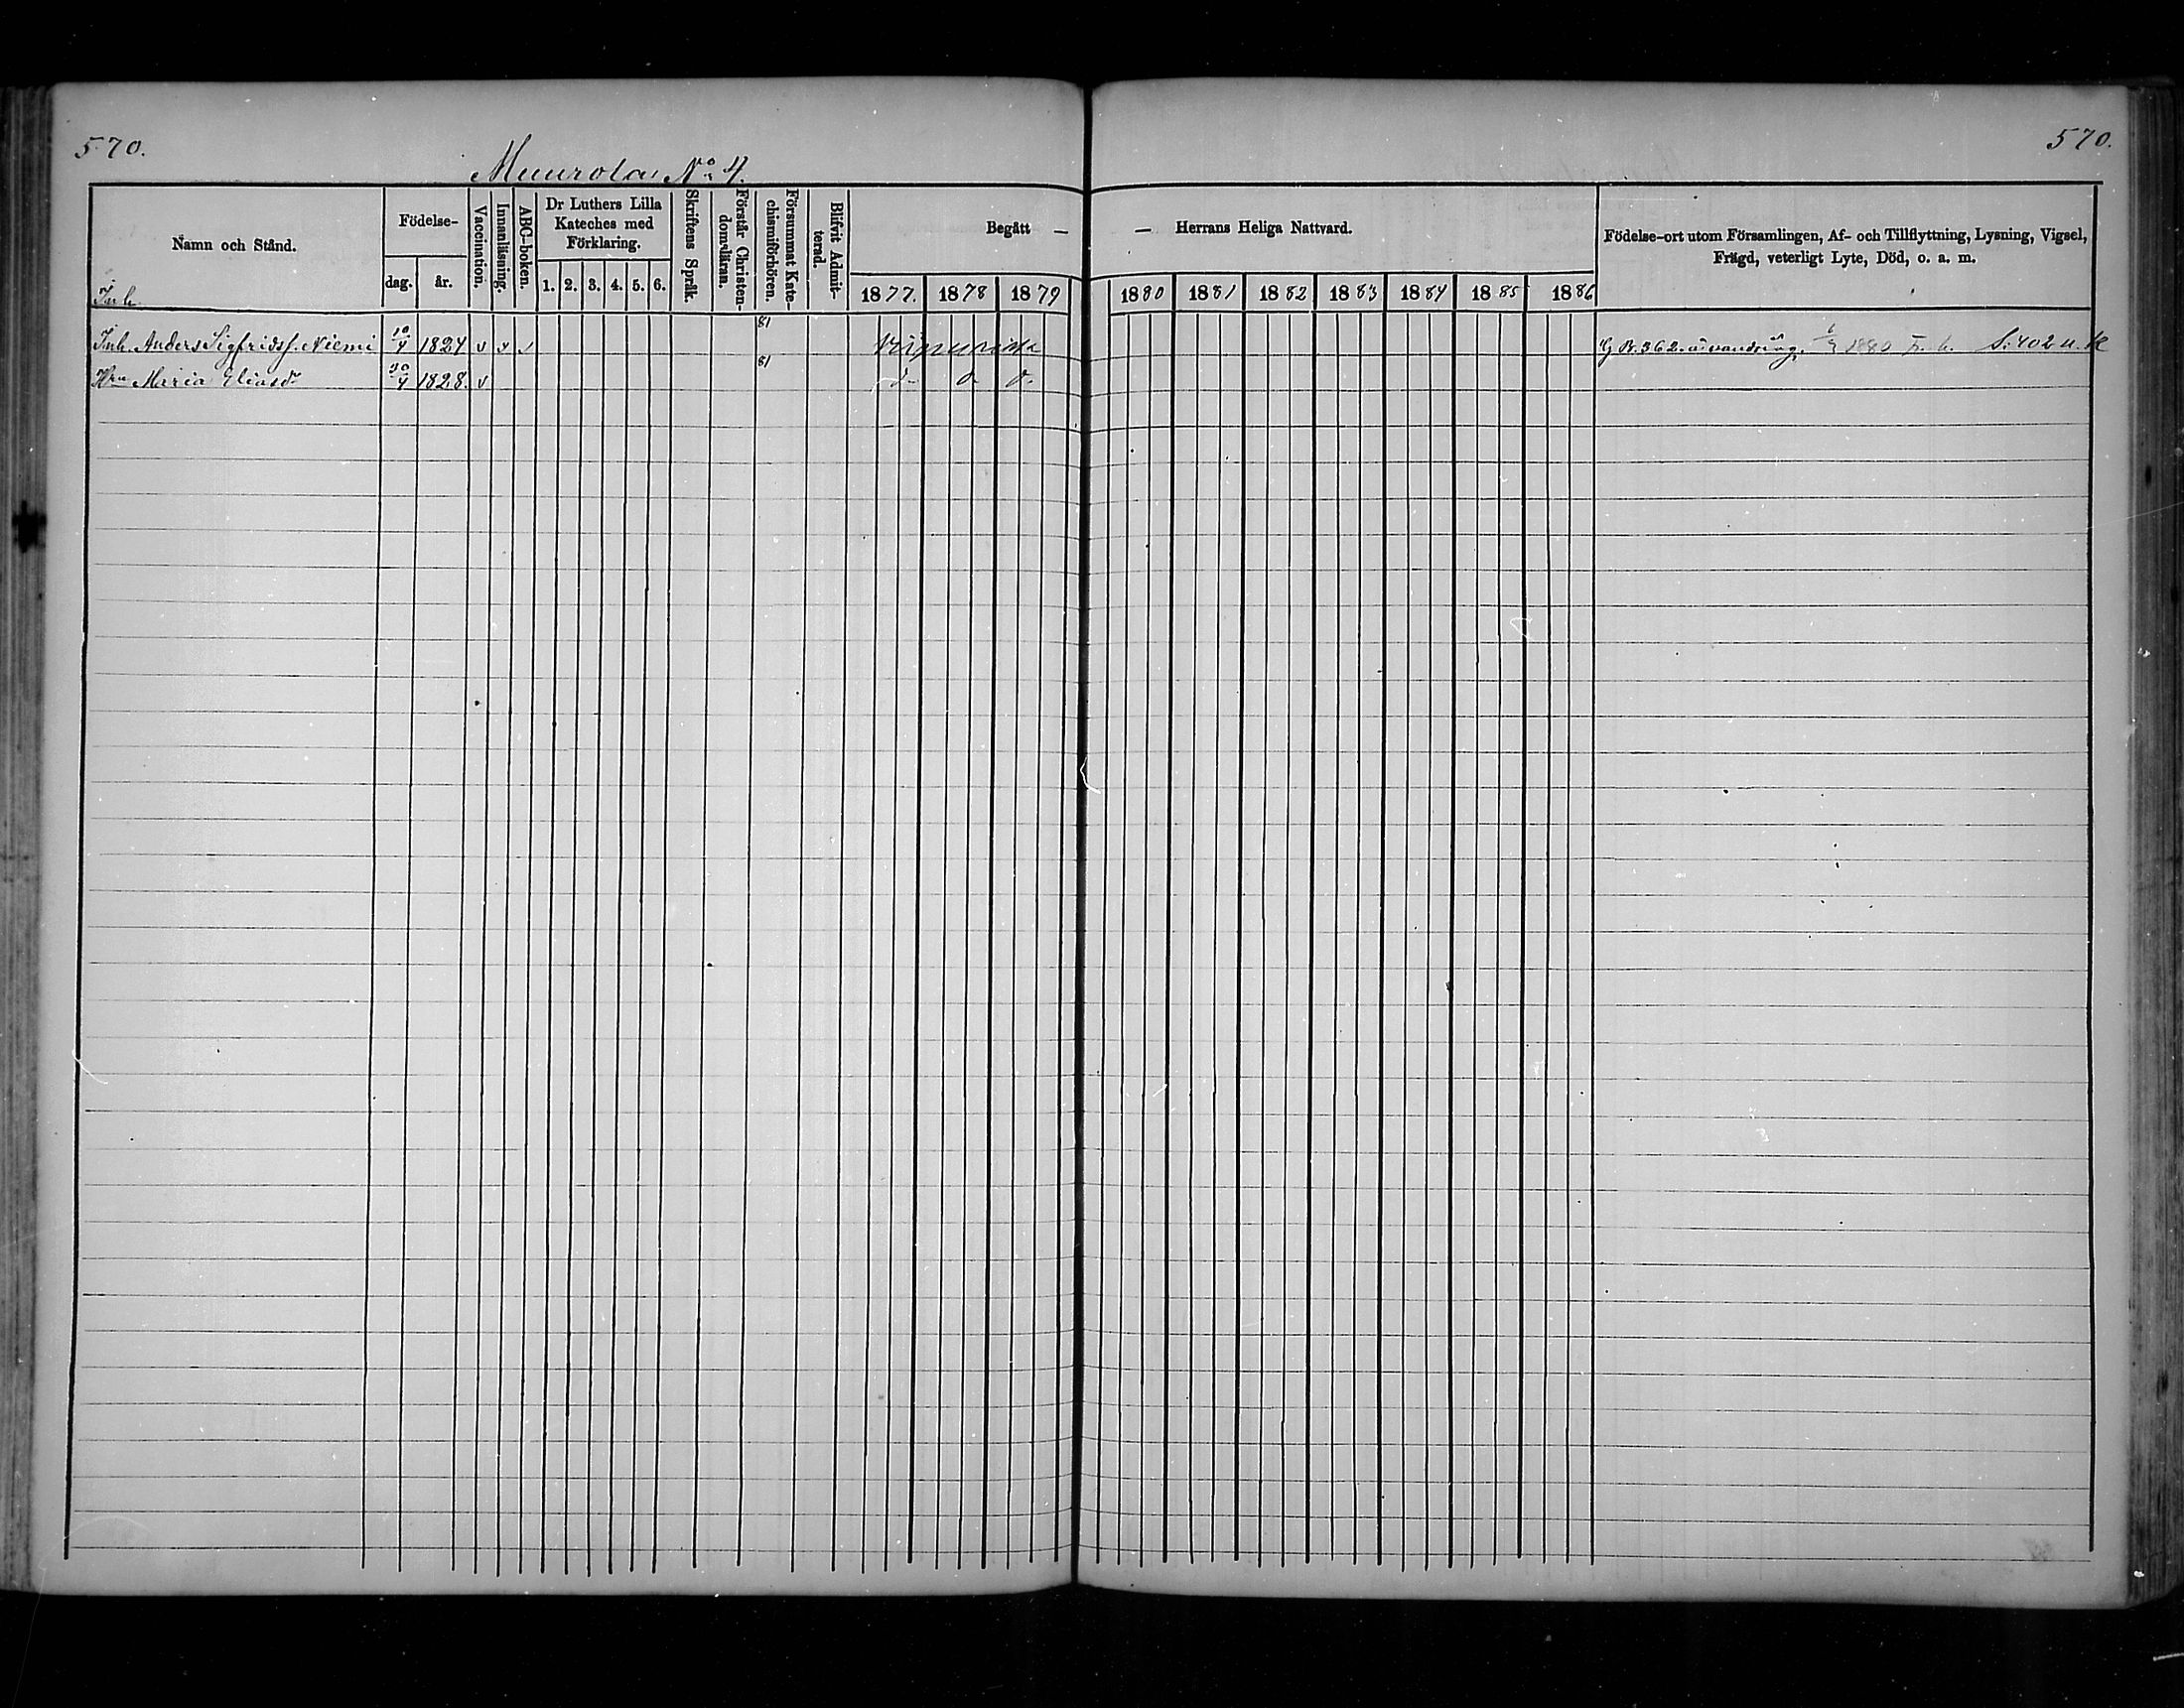 570.
570.
Muurola No 4.
Namn och Stånd.
Födelse-
dag.
år.
Vaccination.
Innanläsning.
ABC-boken.
Dr Luthers Lilla
Kateches med
Förklaring.
1. 2. 3. 4. 5. 6.
Skriftens Språk.
Förstår Christen-
domsläran.
Försummat Kate-
chismiförhören.
Blifvit Admit-
terad.
Begått —
— Herrans Heliga Nattvard.
1877. 1878 1879
1880 1881 1882 1883 1884 1885 1886
Födelse-ort utom Församlingen, Af- och Tillflyttning, Lysning, Vigsel,
Frägd, veterligt Lyte, Död, o. a. m.
Inh.
Inh. Anders Sigfridss. Niemi 10/4 1824 v v v 81 S. 402 u. k
Hru Maria Eliasdr 30/4 1828. v 81 d. d. d.